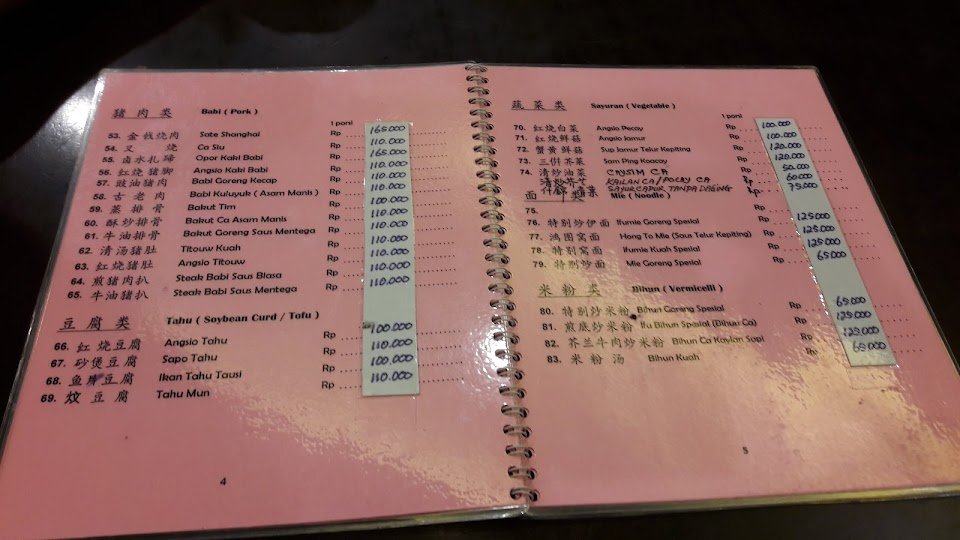 猪肉类 Babi ( Pork )
1 porsi
53. 金钱烧肉 Sate Shanghai Rp 165.000
54. 叉烧 Ca Siu Rp 110.000
55. 卤水扎蹄 Opor Kaki Babi Rp 165.000
56. 红烧猪脚 Angsio Kaki Babi Rp 110.000
57. 豉油猪肉 Babi Goreng Kecap Rp 110.000
58. 古老肉 Babi Kuluyuk ( Asam Manis ) Rp 110.000
59. 蒸排骨 Bakut Tim Rp 100.000
60. 酥炒排骨 Bakut Ca Asam Manis Rp 110.000
61. 牛油排骨 Bakut Goreng Saus Mentega Rp 110.000
62. 清汤猪肚 Titouw Kuah Rp 110.000
63. 红烧猪肚 Angsio Titouw Rp 110.000
64. 煎猪肉扒 Steak Babi Saus Biasa Rp 110.000
65. 牛油猪扒 Steak Babi Saus Mentega Rp 110.000
豆腐类 Tahu ( Soybean Curd / Tofu )
66. 红烧豆腐 Angsio Tahu Rp 100.000
67. 砂煲豆腐 Sapo Tahu Rp 110.000
68. 鱼豆腐 Ikan Tahu Tausi Rp 100.000
69. 炆豆腐 Tahu Mun Rp 110.000
4
蔬菜类 Sayuran ( Vegetable )
1 porsi
70. 红烧白菜 Angsio Pecay Rp 100.000
71. 红烧鲜菇 Angsio Jamur Rp 100.000
72. 蟹黄鲜菇 Sup Jamur Telur Kepiting Rp 120.000
73. 三侧芥菜 Sam Ping Koacay Rp 120.000
74. 清炒油菜 CAYSIM CA Rp 50.000
清炒芥兰 KAILAN CA/POCAY CA Rp 60.000
SAYUR CAPUR TANPA DAGING Rp 75.000
面类 Mie ( Noodle )
75.
76. 特别炒伊面 Ifumie Goreng Spesial Rp 125.000
77. 鸿图窝面 Hong To Mie (Saus Telur Kepiting) Rp 125.000
78. 特别窝面 Ifumie Kuah Spesial Rp 125.000
79. 特别炒面 Mie Goreng Spesial Rp 65.000
米粉类 Bihun ( Vermicelli )
80. 特别炒米粉 Bihun Goreng Spesial Rp 65.000
81. 煎底炒米粉 Ifu Bihun Spesial (Bihun Ca) Rp 125.000
82. 芥兰牛肉炒米粉 Bihun Ca Kaylan Sapi Rp 125.000
83. 米粉汤 Bihun Kuah Rp 65.000
5